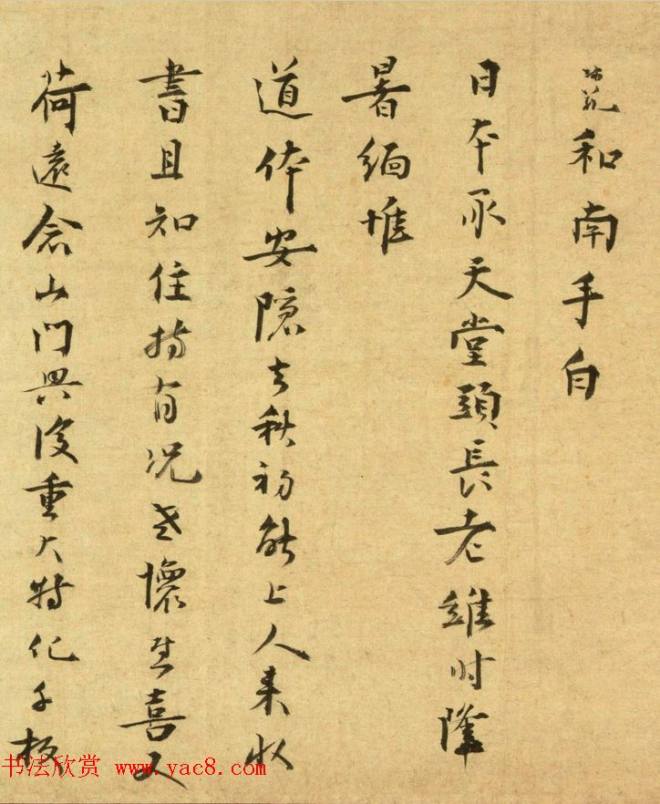 師範和南手白
日本承天堂頭長老維时隆
暑緬惟
道体安隠去秋初能上人来收
書且知住持有况老懷甚喜又
荷遠念山門興復重大特化千板
书法欣赏 www.yac8.com